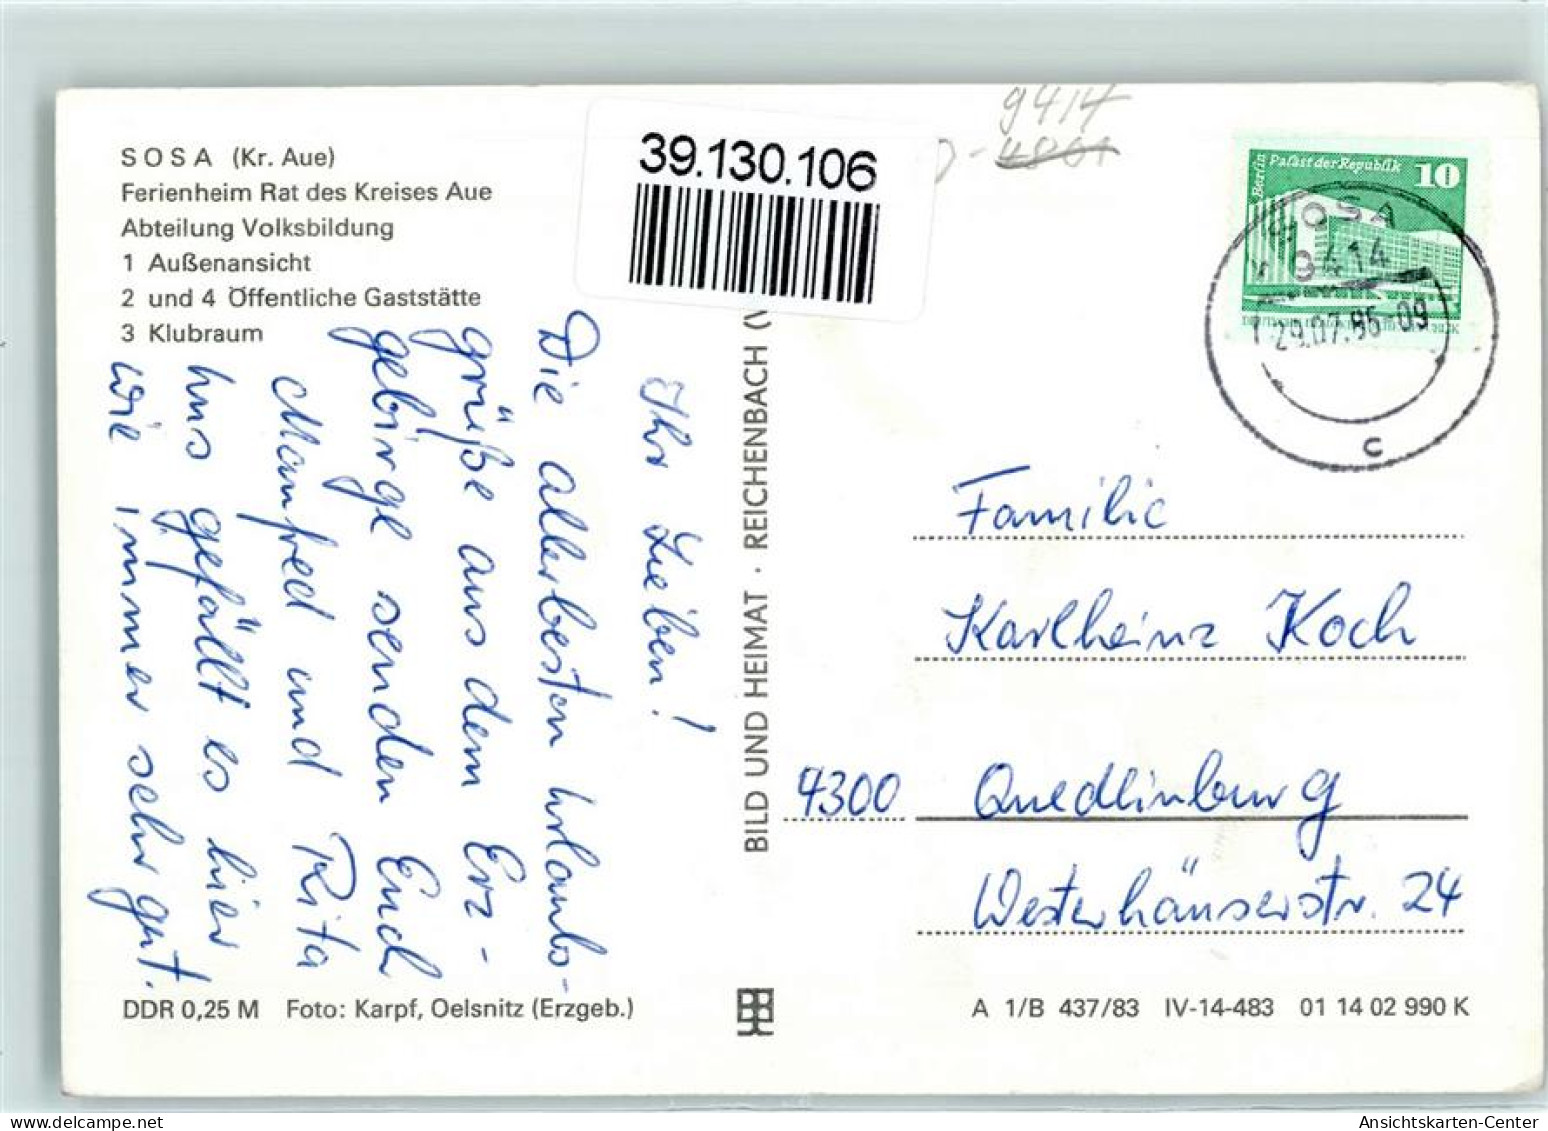 SOSA (Kr. Aue)
Ferienheim Rat des Kreises Aue
Abteilung Volksbildung
1 Außenansicht
2 und 4 Öffentliche Gaststätte
3 Klubraum
39.130.106
9414
Berlin
Palast der Republik 10
SOSA
9414
29.07.86-09
c
Ihr Lieben!
Die allerbesten Urlaubs-
grüße aus dem Erz-
gebirge senden Euch
Manfred und Rita
Uns gefällt es hier
wie immer sehr gut.
BILD UND HEIMAT · REICHENBACH (V
Familie
Karlheinz Koch
4300 Quedlinburg
Westerhäuserstr. 24
DDR 0,25 M Foto: Karpf, Oelsnitz (Erzgeb.)
A 1/B 437/83 IV-14-483 01 14 02 990 K
Ansichtskarten-Center